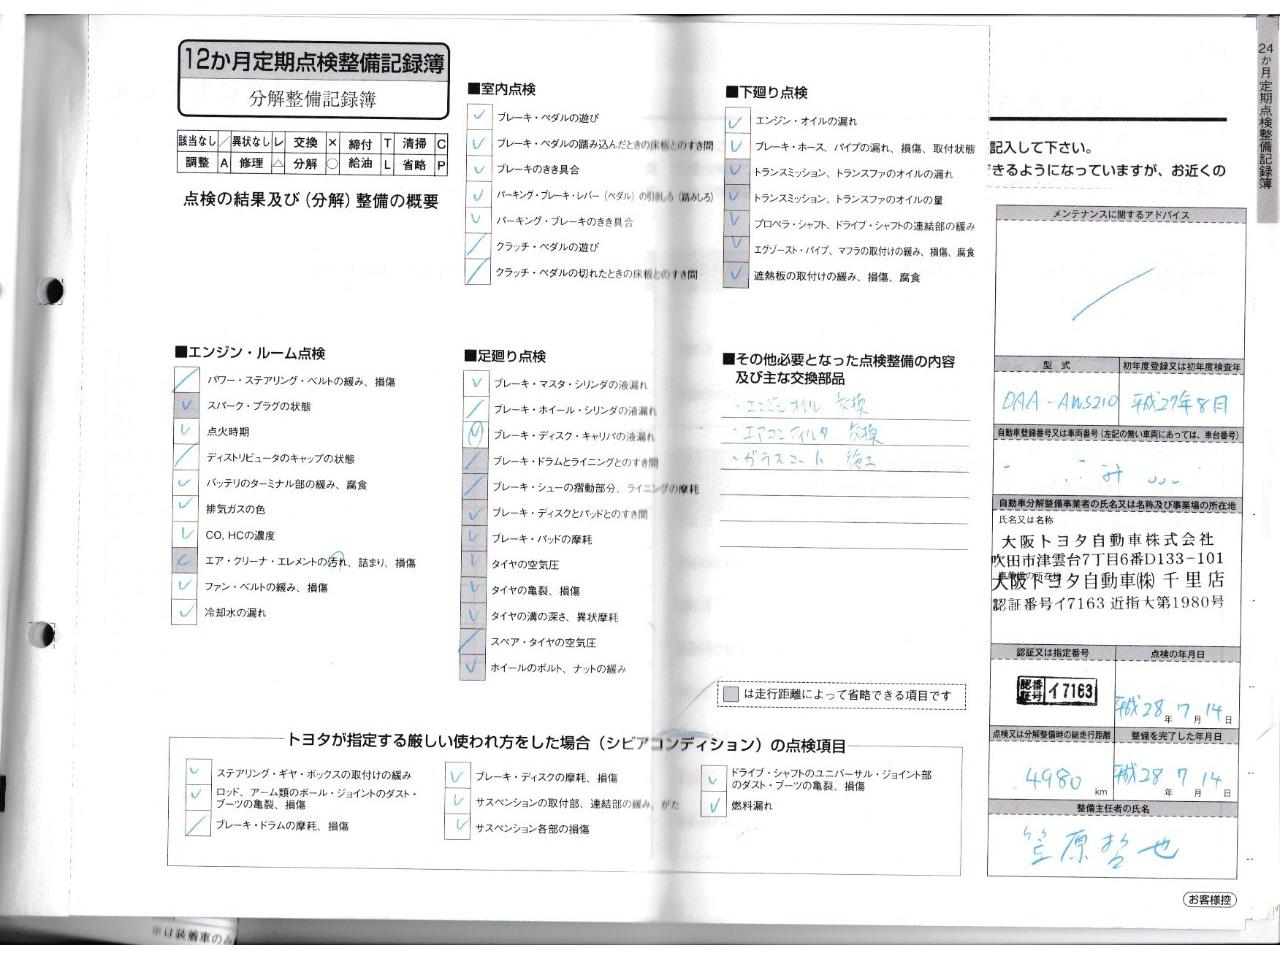 12か月定期点検整備記録簿
分解整備記録簿
該当なし ／ 異状なし レ 交換 × 締付 T 清掃 C
調整 A 修理 △ 分解 ○ 給油 L 省略 P
点検の結果及び(分解)整備の概要
■室内点検
ブレーキ・ペダルの遊び
ブレーキ・ペダルの踏み込んだときの床板とのすき間
ブレーキのきき具合
パーキング・ブレーキ・レバー(ペダル)の引きしろ(踏みしろ)
パーキング・ブレーキのきき具合
クラッチ・ペダルの遊び
クラッチ・ペダルの切れたときの床板とのすき間
■下廻り点検
エンジン・オイルの漏れ
ブレーキ・ホース、パイプの漏れ、損傷、取付状態
トランスミッション、トランスファのオイルの漏れ
トランスミッション、トランスファのオイルの量
プロペラ・シャフト、ドライブ・シャフトの連結部の緩み
エグゾースト・パイプ、マフラの取付けの緩み、損傷、腐食
遮熱板の取付けの緩み、損傷、腐食
■エンジン・ルーム点検
パワー・ステアリング・ベルトの緩み、損傷
スパーク・プラグの状態
点火時期
ディストリビュータのキャップの状態
バッテリのターミナル部の緩み、腐食
排気ガスの色
CO, HCの濃度
エア・クリーナ・エレメントの汚れ、詰まり、損傷
ファン・ベルトの緩み、損傷
冷却水の漏れ
■足廻り点検
ブレーキ・マスタ・シリンダの液漏れ
ブレーキ・ホイール・シリンダの液漏れ
ブレーキ・ディスク・キャリパの液漏れ
ブレーキ・ドラムとライニングとのすき間
ブレーキ・シューの摺動部分、ライニングの摩耗
ブレーキ・ディスクとパッドとのすき間
ブレーキ・パッドの摩耗
タイヤの空気圧
タイヤの亀裂、損傷
タイヤの溝の深さ、異状摩耗
スペア・タイヤの空気圧
ホイールのボルト、ナットの緩み
■その他必要となった点検整備の内容
及び主な交換部品
・エンジンオイル 交換
・エアコンフィルタ 交換
・ガラスコート 施工
は走行距離によって省略できる項目です
トヨタが指定する厳しい使われ方をした場合(シビアコンディション)の点検項目
ステアリング・ギヤ・ボックスの取付けの緩み
ロッド、アーム類のボール・ジョイントのダスト・
ブーツの亀裂、損傷
ブレーキ・ドラムの摩耗、損傷
ブレーキ・ディスクの摩耗、損傷
サスペンションの取付部、連結部の緩み、がた
サスペンション各部の損傷
ドライブ・シャフトのユニバーサル・ジョイント部
のダスト・ブーツの亀裂、損傷
燃料漏れ
24か月定期点検整備記録簿
記入して下さい。
できるようになっていますが、お近くの
メンテナンスに関するアドバイス
型 式 初年度登録又は初年度検査年
DAA-AWS210 平成27年8月
自動車登録番号又は車両番号(左記の無い車両にあっては、車台番号)
自動車分解整備事業者の氏名又は名称及び事業場の所在地
氏名又は名称
大阪トヨタ自動車株式会社
吹田市津雲台7丁目6番D133-101
事業場の所在地
大阪トヨタ自動車㈱千里店
認証番号イ7163 近指大第1980号
認証又は指定番号 点検の年月日
認番証号 イ7163 平成28年7月14日
点検又は分解整備時の総走行距離 整備を完了した年月日
4980km 平成28年7月14日
整備主任者の氏名
笠原哲也
お客様控
※は装着車のみ